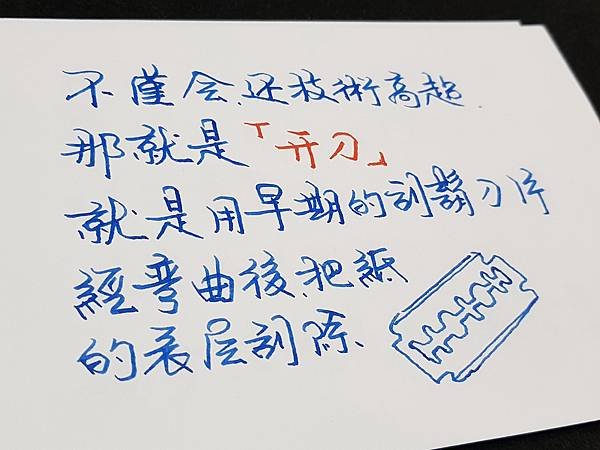 不僅会、还技術高超.
那就是「开刀」
就是用早期的刮鬍刀片
經弯曲後、把紙
的表层刮除、